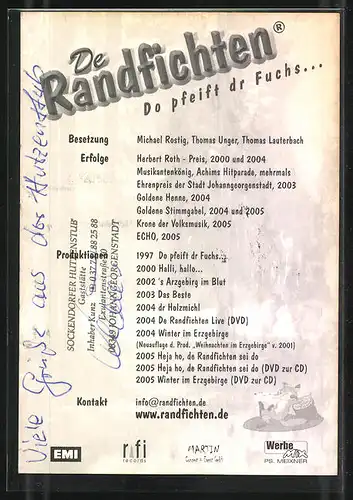 De
Randfichten®
Do pfeift dr Fuchs...
Besetzung Michael Rostig, Thomas Unger, Thomas Lauterbach
Erfolge Herbert Roth - Preis, 2000 und 2004
Musikantenkönig, Achims Hitparade, mehrmals
Ehrenpreis der Stadt Johanngeorgenstadt, 2003
Goldene Henne, 2004
Goldene Stimmgabel, 2004 und 2005
Krone der Volksmusik, 2005
ECHO, 2005
Produktionen 1997 Do pfeift dr Fuchs...
2000 Halli, hallo...
2002 's Arzgebirg im Blut
2003 Das Beste
2004 dr Holzmichl
2004 De Randfichten Live (DVD)
2004 Winter im Erzgebirge
(Neuauflage d. Prod. „Weihnachten im Erzgebirge" v. 2001)
2005 Heja ho, de Randfichten sei do
2005 Heja ho, de Randfichten sei do (DVD zur CD)
2005 Winter im Erzgebirge (DVD zur CD)
Kontakt info@randfichten.de
www.randfichten.de
Viele Grüße aus der Hutzenstub
SOCKENDORFER HUTZENSTUB
Gaststätte
Inhaber Kunz
08349 JOHANNGEORGENSTADT
EMI
rafi
records
MARTIN
Werbe
MIX
PS. MEIXNER